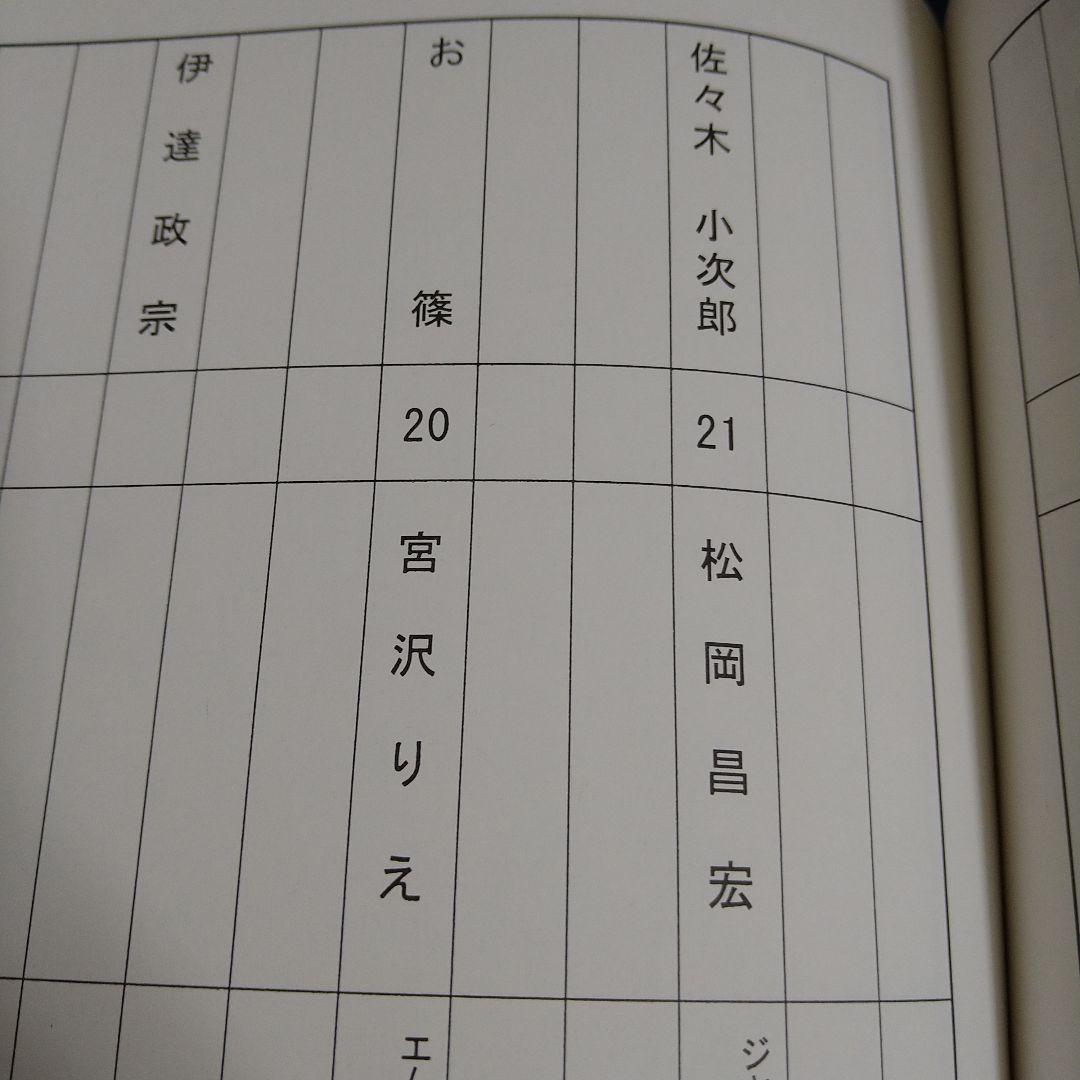 佐々木 小次郎
21
松岡昌宏
お篠
20
宮沢りえ
伊達政宗